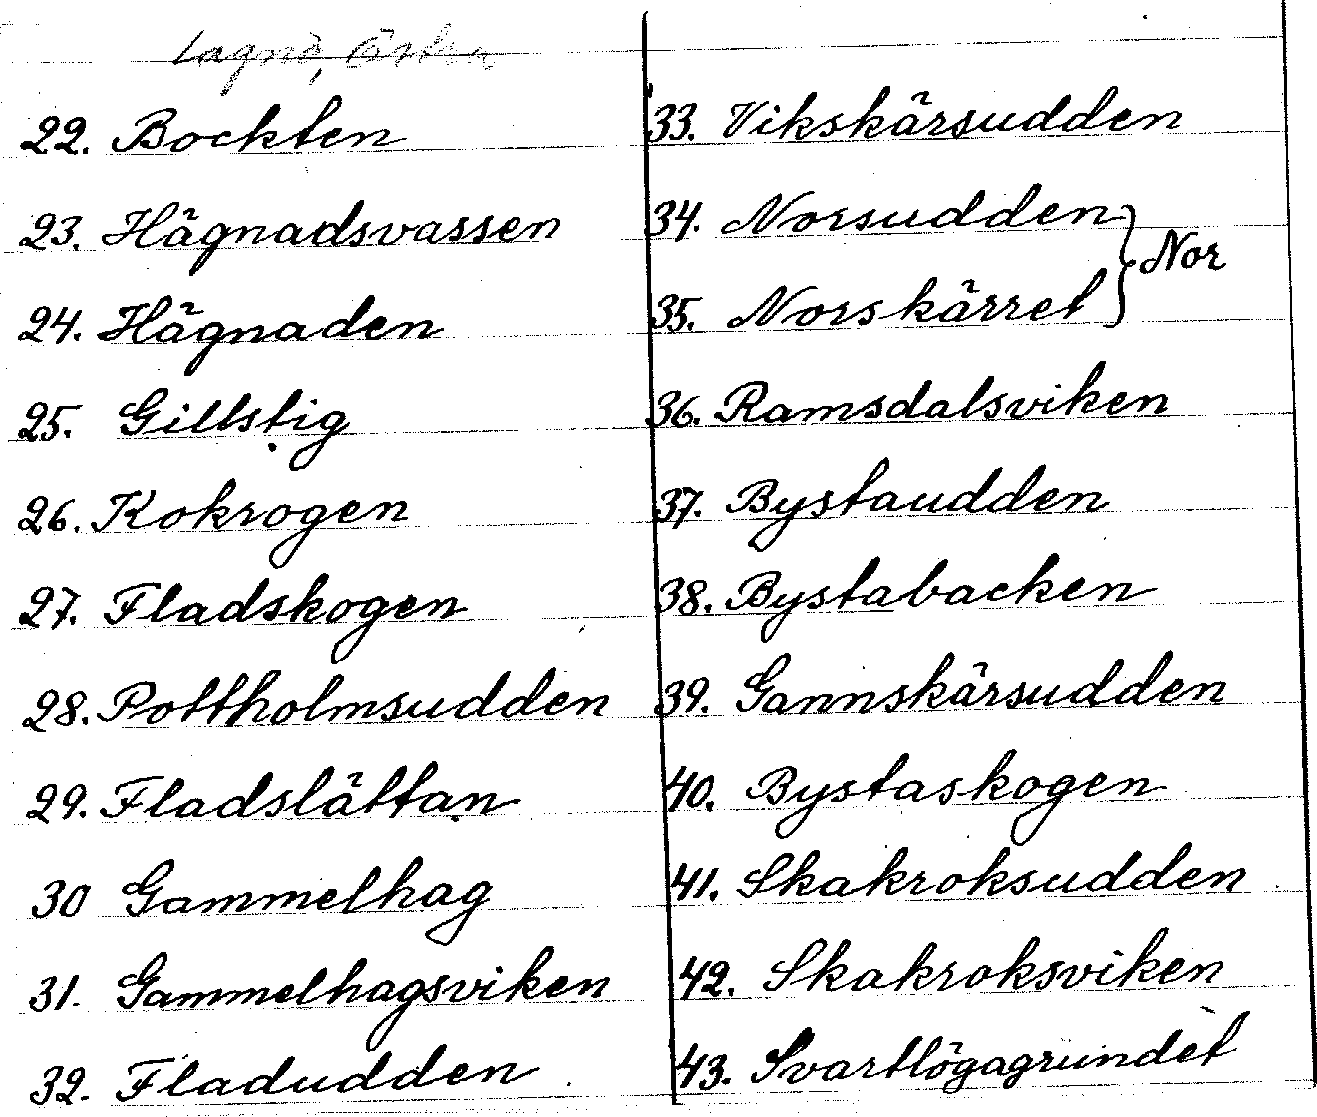 Lagnö, Östra
22. Bockten
23. Hägnadsvassen
24. Hägnaden
25. Gillstig
26. Kokrogen
27. Fladskogen
28. Pottholmsudden
29. Fladslättan
30 Gammelhag
31. Gammelhagsviken
32. Fladudden
33. Vikskärsudden
34. Norsudden
Nor
35. Norskärret
36. Ramsdalsviken
37. Bystaudden
38. Bystabacken
39. Gannskärsudden
40. Bystaskogen
41. Skakroksudden
42. Skakroksviken
43. Svartlögagrundet